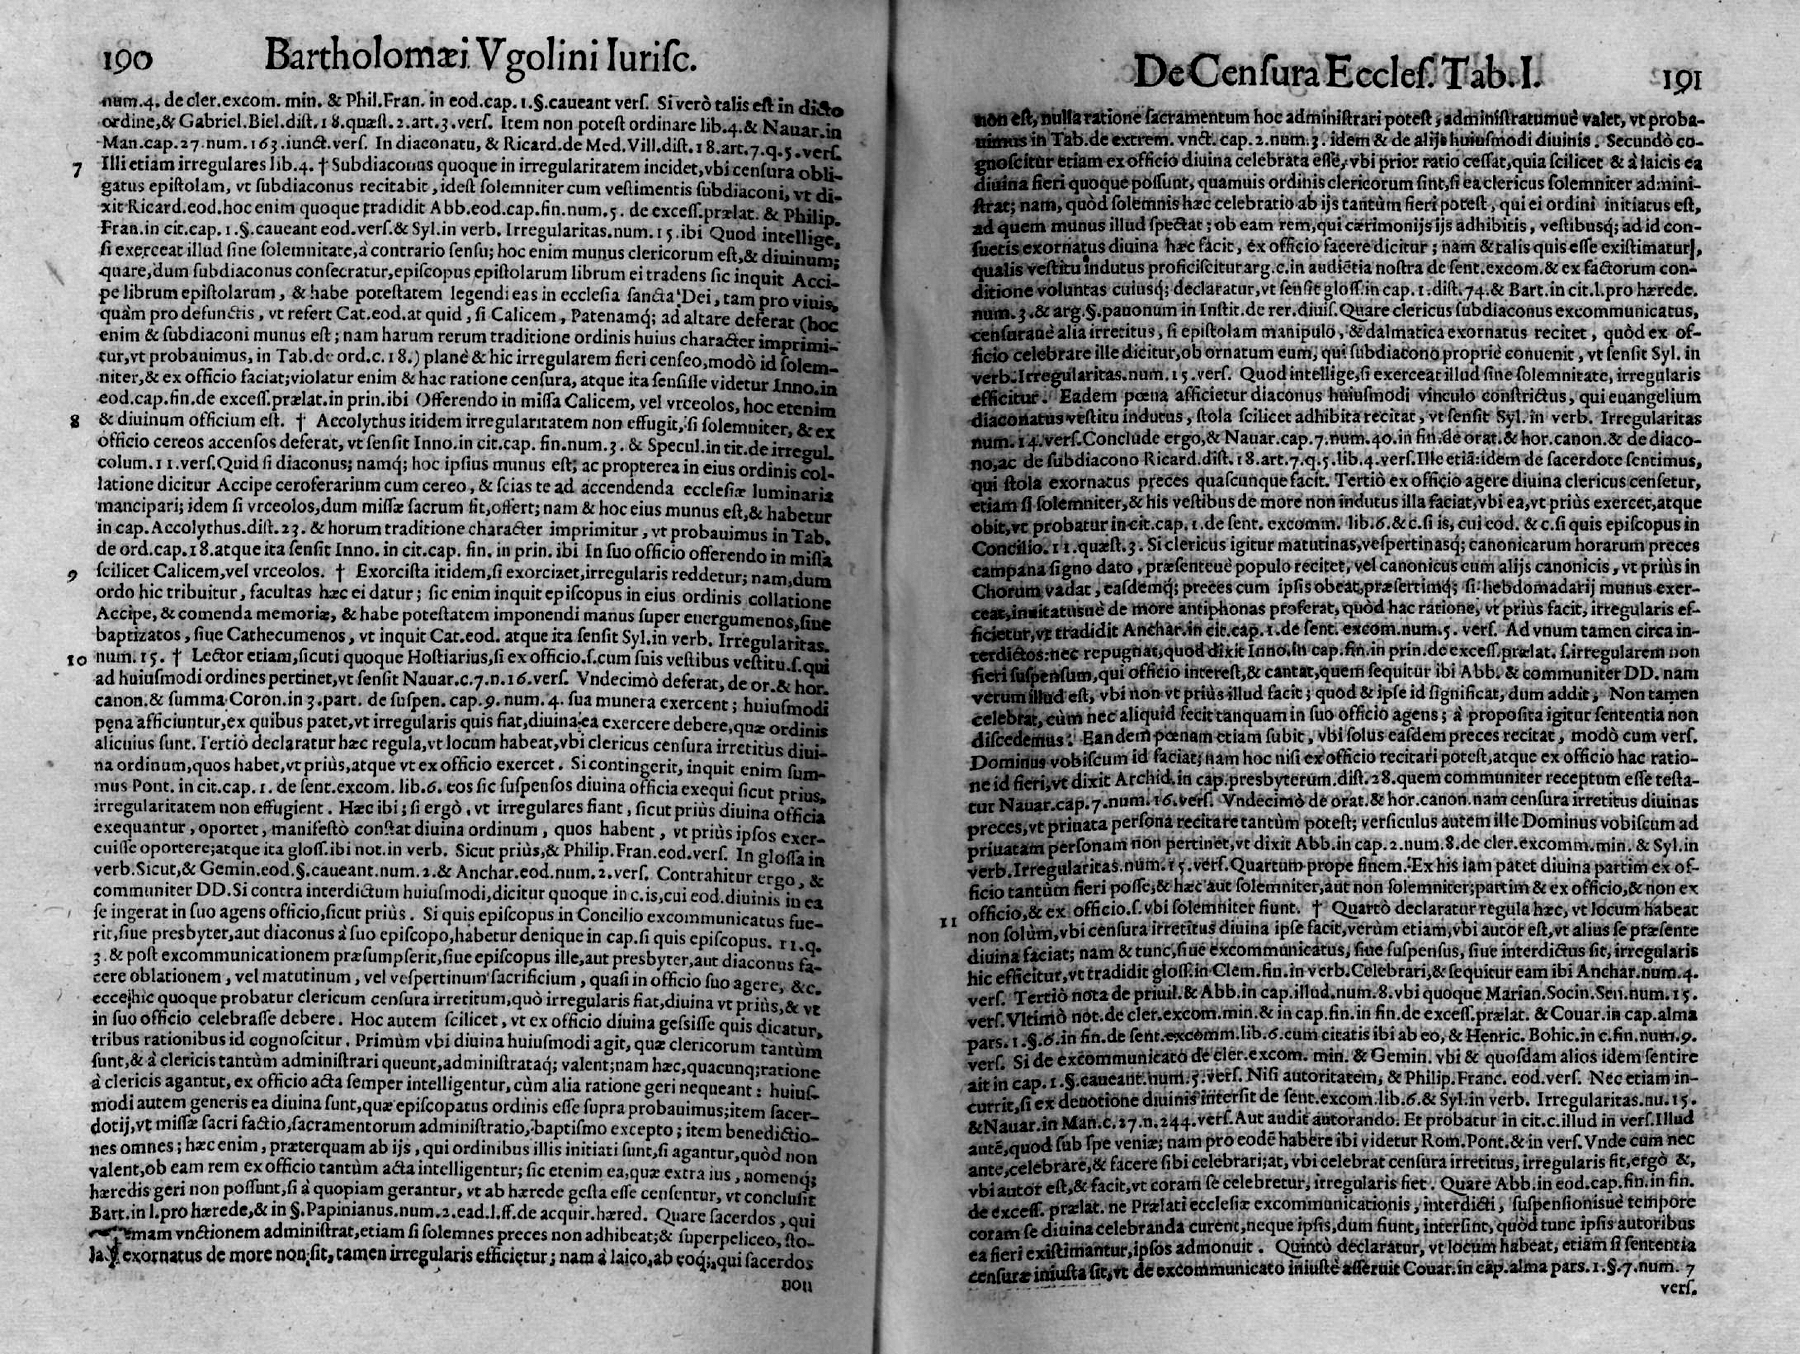 190 Bartholomæi Vgolini Iuriſc.
num.4. de cler.excom. min. & Phil.Fran. in eod.cap. 1.§.caueant verſ. Si verò talis eſt in dicto
ordine,& Gabriel.Biel.diſt.18.quæſt.2.art.3.verſ. Item non poteſt ordinare lib.4.& Nauar.in
Man.cap.27.num.163.iunct.verſ. In diaconatu, & Ricard.de Med.Vill.diſt.18.art.7.q.5.verſ.
7 Illi etiam irregulares lib.4. † Subdiaconus quoque in irregularitatem incidet,vbi cenſura obli-
gatus epiſtolam, vt ſubdiaconus recitabit, ideſt ſolemniter cum veſtimentis ſubdiaconi, vt di-
xit Ricard.eod.hoc enim quoque tradidit Abb.eod.cap.fin.num.5. de exceſſ.prælat. & Philip.
Fran.in cit.cap. 1.§.caueant eod.verſ.& Syl.in verb. Irregularitas.num.15.ibi Quod intellige,
ſi exerceat illud ſine ſolemnitate,à contrario ſenſu; hoc enim munus clericorum eſt,& diuinum;
quare,dum ſubdiaconus conſecratur,epiſcopus epiſtolarum librum ei tradens ſic inquit Acci-
pe librum epiſtolarum, & habe poteſtatem legendi eas in eccleſia ſancta Dei, tam pro viuis,
quàm pro defunctis, vt refert Cat.eod.at quid, ſi Calicem, Patenamq; ad altare deferat (hoc
enim & ſubdiaconi munus eſt; nam harum rerum traditione ordinis huius character imprimi-
tur,vt probauimus, in Tab.de ord.c.18.) planè & hic irregularem fieri cenſeo,modò id ſolem-
niter,& ex officio faciat;violatur enim & hac ratione cenſura, atque ita ſenſiſſe videtur Inno.in
eod.cap.fin.de exceſſ.prælat.in prin.ibi Offerendo in miſſa Calicem, vel vrceolos, hoc etenim
8 & diuinum officium eſt. † Accolythus itidem irregularitatem non effugit, ſi ſolemniter, & ex
officio cereos accenſos deferat, vt ſenſit Inno.in cit.cap. fin.num.3. & Specul.in tit.de irregul.
colum.11.verſ.Quid ſi diaconus; namq; hoc ipſius munus eſt; ac propterea in eius ordinis col-
latione dicitur Accipe ceroferarium cum cereo, & ſcias te ad accendenda eccleſiæ luminaria
mancipari; idem ſi vrceolos,dum miſſæ ſacrum fit,offert; nam & hoc eius munus eſt,& habetur
in cap.Accolythus.diſt.23. & horum traditione character imprimitur, vt probauimus in Tab.
de ord.cap.18.atque ita ſenſit Inno. in cit.cap. fin. in prin. ibi In ſuo officio offerendo in miſſa
9 ſcilicet Calicem,vel vrceolos. † Exorciſta itidem,ſi exorcizet,irregularis reddetur; nam,dum
ordo hic tribuitur, facultas hæc ei datur; ſic enim inquit epiſcopus in eius ordinis collatione
Accipe, & comenda memoriæ, & habe poteſtatem imponendi manus ſuper energumenos,ſiue
baptizatos, ſiue Cathecumenos, vt inquit Cat.eod. atque ita ſenſit Syl.in verb. Irregularitas.
10 num.15. † Lector etiam,ſicuti quoque Hoſtiarius,ſi ex officio.ſ.cum ſuis veſtibus veſtitu.ſ.qui
ad huiuſmodi ordines pertinet,vt ſenſit Nauar.c.7.n.16.verſ. Vndecimò deferat, de or.& hor.
canon.& ſumma Coron.in 3.part. de ſuſpen. cap.9. num.4. ſua munera exercent; huiuſmodi
pęna afficiuntur,ex quibus patet,vt irregularis quis fiat,diuina ea exercere debere,quæ ordinis
alicuius ſunt. Tertiò declaratur hæc regula,vt locum habeat,vbi clericus cenſura irretitus diui-
na ordinum,quos habet,vt priùs,atque vt ex officio exercet. Si contingerit, inquit enim ſum-
mus Pont. in cit.cap. 1. de ſent.excom. lib.6. eos ſic ſuſpenſos diuina officia exequi ſicut prius,
irregularitatem non effugient. Hæc ibi; ſi ergò, vt irregulares fiant, ſicut priùs diuina officia
exequantur, oportet, manifeſtò conſtat diuina ordinum, quos habent, vt priùs ipſos exer-
cuiſſe oportere;atque ita gloſſ.ibi not.in verb. Sicut priùs,& Philip.Fran.eod.verſ. In gloſſa in
verb. Sicut,& Gemin.eod.§.caueant.num.2.& Anchar.eod.num.2.verſ. Contrahitur ergo, &
communiter DD. Si contra interdictum huiuſmodi,dicitur quoque in c.is,cui eod.diuinis in ea
ſe ingerat in ſuo agens officio,ſicut priùs. Si quis epiſcopus in Concilio excommunicatus fue-
rit,ſiue presbyter,aut diaconus à ſuo epiſcopo,habetur denique in cap.ſi quis epiſcopus. 11.q.
3.& poſt excommunicationem præſumpſerit,ſiue epiſcopus ille,aut presbyter,aut diaconus fa-
cere oblationem, vel matutinum, vel veſpertinum ſacrificium, quaſi in officio ſuo agere, &c.
ecce,hic quoque probatur clericum cenſura irretitum,quò irregularis fiat,diuina vt priùs,& vt
in ſuo officio celebraſſe debere. Hoc autem ſcilicet, vt ex officio diuina geſſiſſe quis dicatur,
tribus rationibus id cognoſcitur. Primùm vbi diuina huiuſmodi agit, quæ clericorum tantùm
ſunt,& à clericis tantùm adminiſtrari queunt,adminiſtrataq; valent;nam hæc,quacunq;ratione
à clericis agantur, ex officio acta ſemper intelligentur, cùm alia ratione geri nequeant: huiuſ-
modi autem generis ea diuina ſunt,quæ epiſcopatus ordinis eſſe ſupra probauimus;item ſacer-
dotij,vt miſſæ ſacri factio,ſacramentorum adminiſtratio, baptiſmo excepto; item benedictio-
nes omnes; hæc enim, præterquam ab ijs, qui ordinibus illis initiati ſunt,ſi agantur,quòd non
valent,ob eam rem ex officio tantùm acta intelligentur; ſic etenim ea,quæ extra ius, nomenq;
hæredis geri non poſſunt,ſi à quopiam gerantur, vt ab hærede geſta eſſe cenſentur, vt concluſit
Bart.in l.pro hærede,& in §.Papinianus.num.2.ead.l.ff.de acquir.hæred. Quare ſacerdos, qui
vnctionem adminiſtrat,etiam ſi ſolemnes preces non adhibeat;& ſuperpeliceo, ſto-
la exornatus de more non ſit, tamen irregularis efficietur; nam à laico,ab eoq;,qui ſacerdos
non
De Cenſura Eccleſ. Tab. I. 191
non eſt, nulla ratione ſacramentum hoc adminiſtrari poteſt, adminiſtratumuè valet, vt proba-
uimus in Tab.de extrem. vnct. cap. 2.num.3. idem & de alijs huiuſmodi diuinis. Secundò co-
gnoſcitur etiam ex officio diuina celebrata eſſe, vbi prior ratio ceſſat,quia ſcilicet & à laicis ea
diuina fieri quoque poſſunt, quamuis ordinis clericorum ſint,ſi ea clericus ſolemniter admini-
ſtrat; nam, quòd ſolemnis hæc celebratio ab ijs tantùm fieri poteſt, qui ei ordini initiatus eſt,
ad quem munus illud ſpectat; ob eam rem,qui cærimonijs ijs adhibitis, veſtibusq; ad id con-
ſuetis exornatus diuina hæc facit, ex officio facere dicitur; nam & talis quis eſſe exiſtimatur,
qualis veſtitu indutus proficiſcitur arg.c.in audiētia noſtra de ſent.excom.& ex factorum con-
ditione voluntas cuiusq; declaratur,vt ſenſit gloſſ.in cap. 1.diſt.74.& Bart.in cit.l.pro hærede.
num.3.& arg.§.pauonum in Inſtit.de rer.diuiſ. Quare clericus ſubdiaconus excommunicatus,
cenſuraue alia irretitus, ſi epiſtolam manipulo, & dalmatica exornatus recitet, quòd ex of-
ficio celebrare ille dicitur,ob ornatum eum, qui ſubdiacono propriè conuenit, vt ſenſit Syl. in
verb.Irregularitas.num.15.verſ. Quod intellige,ſi exerceat illud ſine ſolemnitate, irregularis
efficitur. Eadem pœna afficietur diaconus huiuſmodi vinculo conſtrictus, qui euangelium
diaconatus veſtitu indutus, ſtola ſcilicet adhibita recitat, vt ſenſit Syl.in verb. Irregularitas
num.14.verſ.Conclude ergo,& Nauar.cap.7.num.40.in fin.de orat.& hor.canon.& de diaco-
no,ac de ſubdiacono Ricard.diſt.18.art.7.q.5.lib.4.verſ.Ille etiā:idem de ſacerdote ſentimus,
qui ſtola exornatus preces quaſcunque facit. Tertiò ex officio agere diuina clericus cenſetur,
etiam ſi ſolemniter,& his veſtibus de more non indutus illa faciat,vbi ea,vt priùs exercet,atque
obit,vt probatur in cit.cap. 1.de ſent. excomm. lib.6.& c.ſi is, cui eod. & c.ſi quis epiſcopus in
Concilio.11.quæſt.3. Si clericus igitur matutinas,veſpertinasq; canonicarum horarum preces
campana ſigno dato, præſenteuè populo recitet, vel canonicus cum alijs canonicis, vt priùs in
Chorum vadat, eaſdemq; preces cum ipſis obeat,præſertimq; ſi hebdomadarij munus exer-
ceat,inuitatusuè de more antiphonas proferat, quòd hac ratione, vt priùs facit, irregularis ef-
ficietur,vt tradidit Anchar.in cit.cap.1.de ſent. excom.num.5. verſ. Ad vnum tamen circa in-
terdictos:nec repugnat,quod dixit Inno.in cap.fin.in prin.de exceſſ.prælat. ſ.irregularem non
fieri ſuſpenſum,qui officio intereſt,& cantat,quem ſequitur ibi Abb.& communiter DD. nam
verum illud eſt, vbi non vt priùs illud facit; quod & ipſe id ſignificat, dum addit, Non tamen
celebrat,cùm nec aliquid fecit tanquam in ſuo officio agens; à propoſita igitur ſententia non
diſcedemus. Eandem pœnam etiam ſubit, vbi ſolus eaſdem preces recitat, modò cum verſ.
Dominus vobiſcum id faciat; nam hoc niſi ex officio recitari poteſt,atque ex officio hac ratio-
ne id fieri,vt dixit Archid.in cap.presbyterum.diſt.28.quem communiter receptum eſſe teſta-
tur Nauar.cap.7.num.16.verſ. Vndecimò de orat.& hor.canon.nam cenſura irretitus diuinas
preces,vt priuata perſona recitare tantùm poteſt; verſiculus autem ille Dominus vobiſcum ad
priuatam perſonam non pertinet, vt dixit Abb.in cap.2.num.8.de cler.excomm.min. & Syl.in
verb.Irregularitas.num.15.verſ.Quartum prope finem. Ex his iam patet diuina partim ex of-
ficio tantùm fieri poſſe,& hæc aut ſolemniter,aut non ſolemniter;partim & ex officio,& non ex
officio,& ex officio.ſ.vbi ſolemniter fiunt. † Quartò declaratur regula hæc, vt locum habeat
11 non ſolùm,vbi cenſura irretitus diuina ipſe facit,verùm etiam,vbi autor eſt,vt alius ſe præſente
diuina faciat; nam & tunc,ſiue excommunicatus, ſiue ſuſpenſus, ſiue interdictus ſit, irregularis
hic efficitur,vt tradidit gloſſ.in Clem.fin.in verb.Celebrari,& ſequitur eam ibi Anchar.num.4.
verſ. Tertiò nota de priuil.& Abb.in cap.illud.num.8.vbi quoque Marian.Socin.Sen.num.15.
verſ.Vltimò not.de cler.excom.min.& in cap.fin.in fin.de exceſſ.prælat. & Couar.in cap.alma
pars.1.§.6.in fin.de ſent.excomm.lib.6.cum citatis ibi ab eo, & Henric. Bohic.in c.fin.num.9.
verſ. Si de excommunicato de cler.excom. min. & Gemin. vbi & quoſdam alios idem ſentire
ait in cap.1.§.caueant.num.5.verſ. Niſi autoritatem, & Philip.Franc. eod.verſ. Nec etiam in-
currit,ſi ex deuotione diuinis interſit de ſent.excom.lib.6.& Syl.in verb. Irregularitas.nu.15.
& Nauar.in Man.c.27.n.244.verſ.Aut audit autorando. Et probatur in cit.c.illud in verſ.Illud
autē,quod ſub ſpe veniæ; nam pro eodē habere ibi videtur Rom.Pont.& in verſ. Vnde cum nec
ante,celebrare,& facere ſibi celebrari;at, vbi celebrat cenſura irretitus, irregularis fit,ergò &,
vbi autor eſt,& facit,vt coram ſe celebretur, irregularis fiet. Quare Abb.in eod.cap.fin.in fin.
de exceſſ. prælat. ne Prælati eccleſiæ excommunicationis, interdicti, ſuſpenſionisuè tempore
coram ſe diuina celebranda curent,neque ipſis,dum fiunt, interſint, quòd tunc ipſis autoribus
ea fieri exiſtimantur,ipſos admonuit. Quintò declaratur, vt locum habeat, etiam ſi ſententia
cenſuræ iniuſta ſit,vt de excommunicato iniuſtè aſſeruit Couar.in cap.alma pars.1.§.7.num.7
verſ.